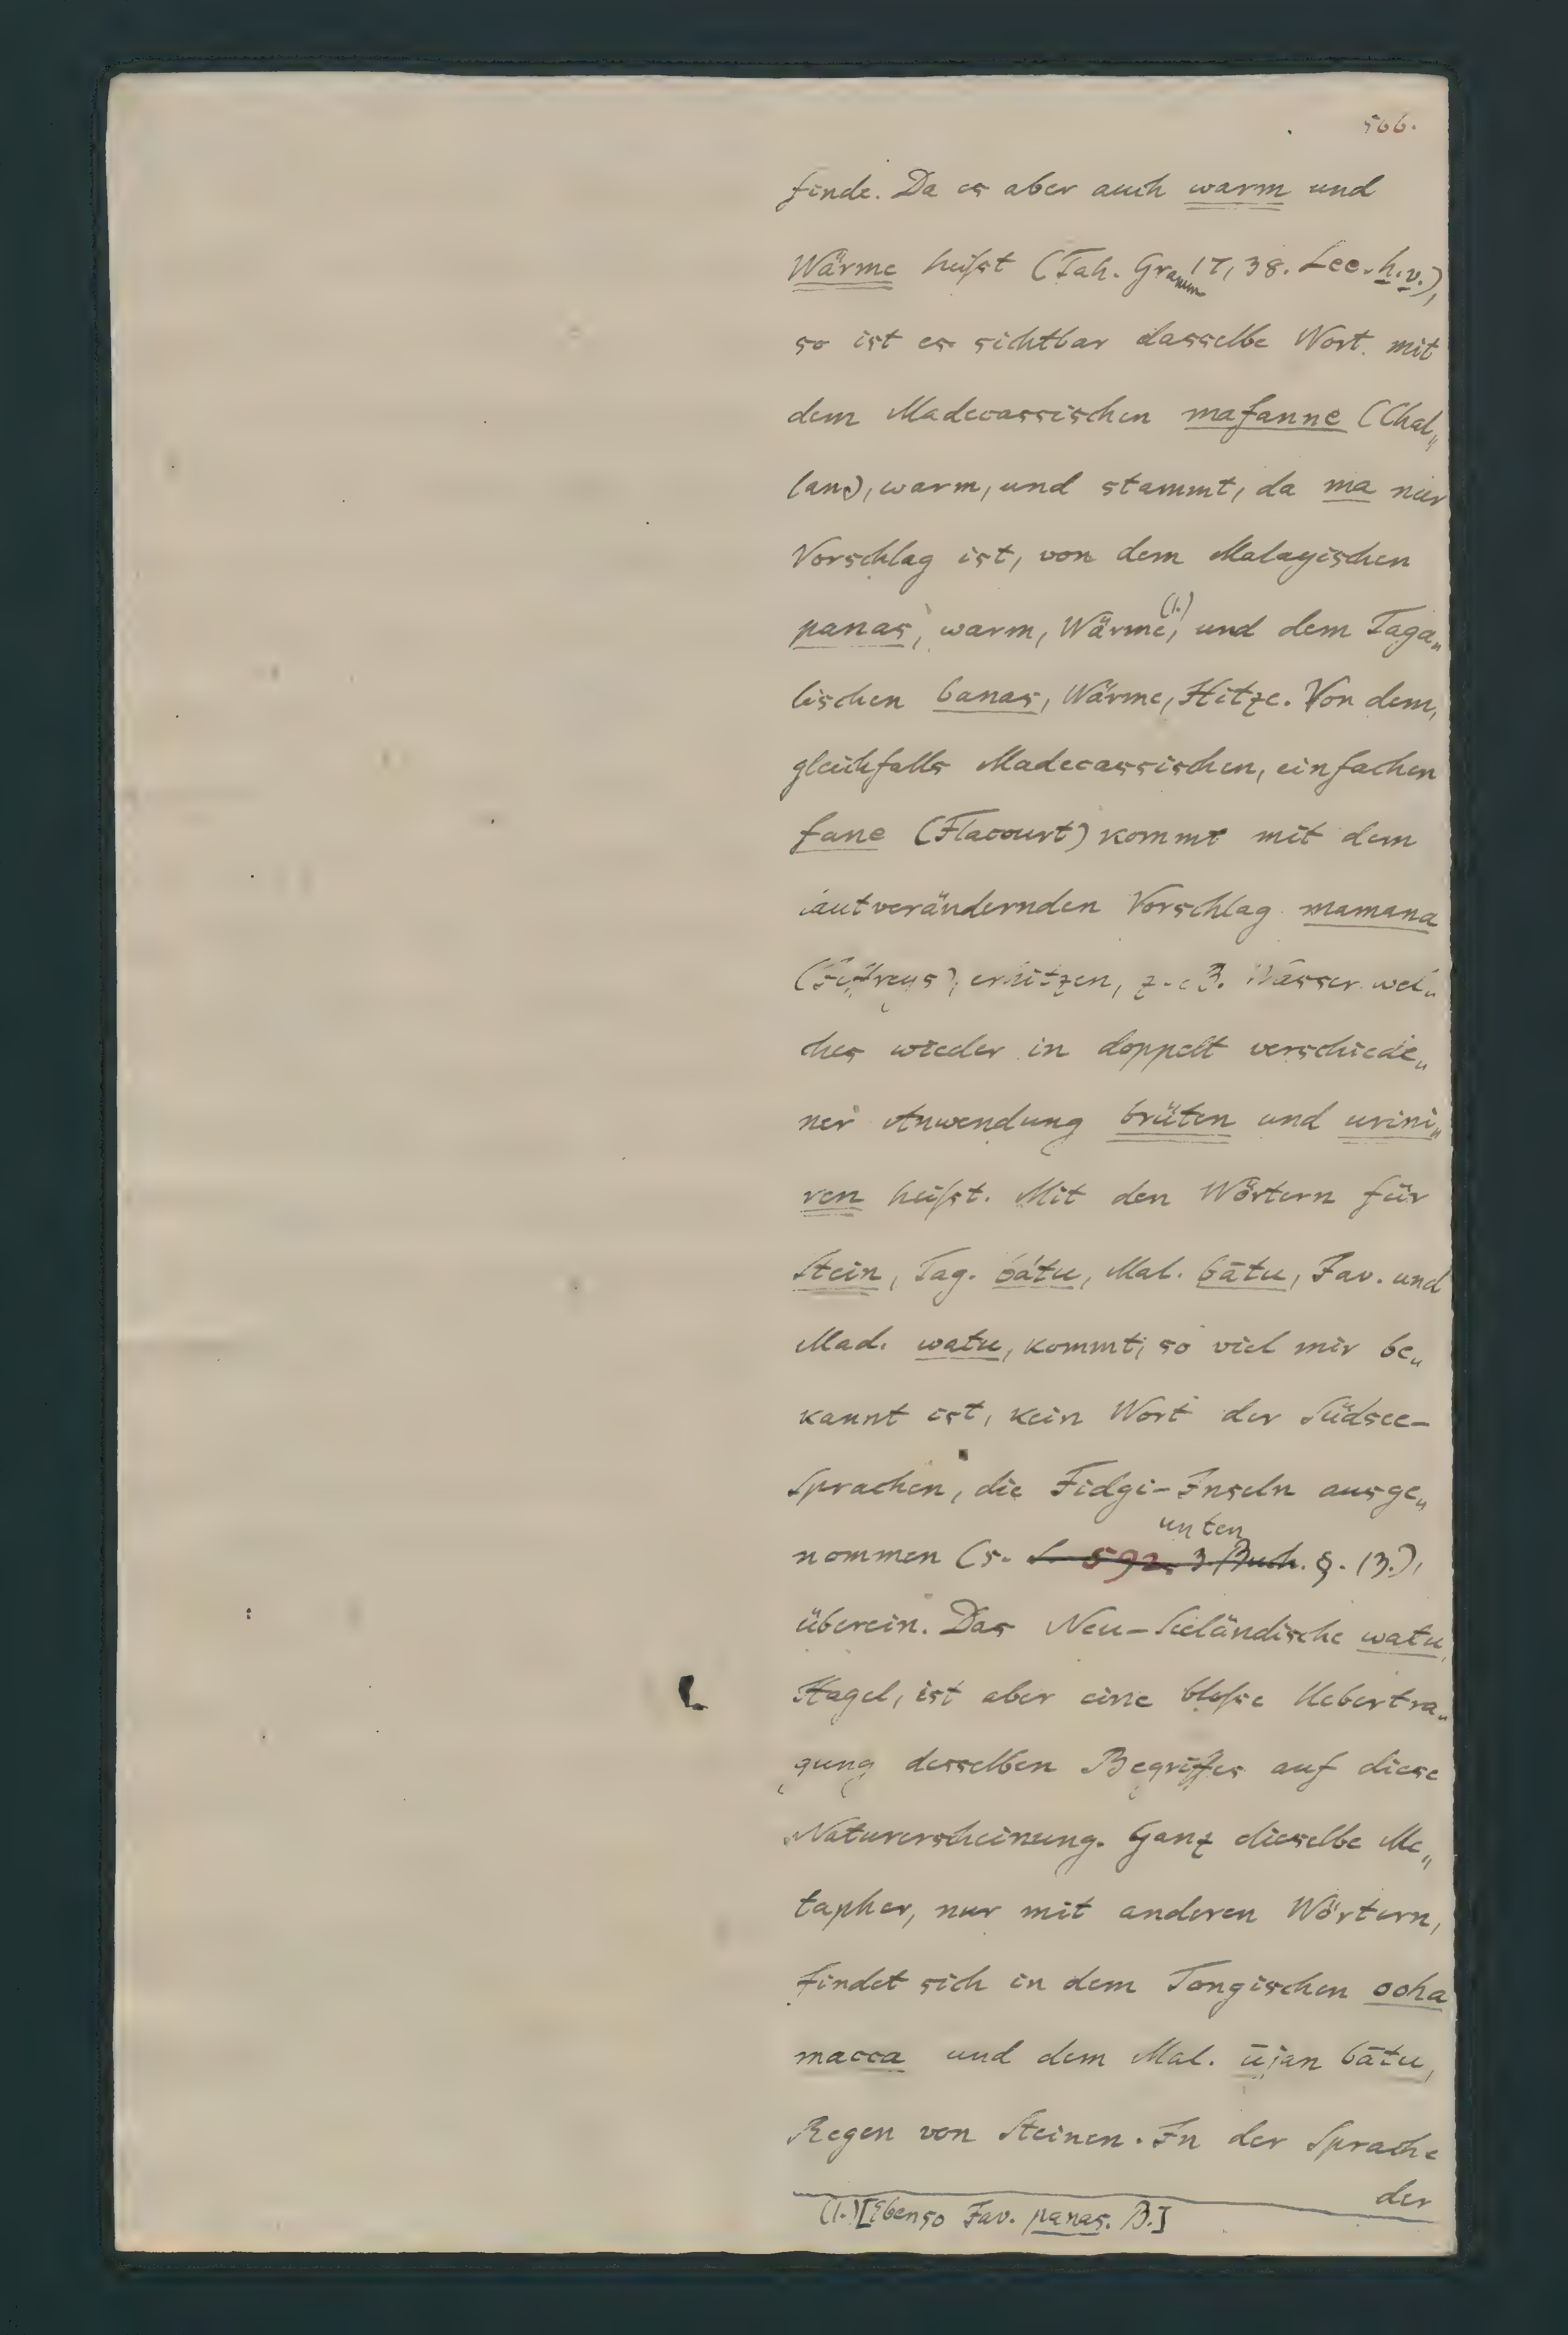 566.
finde. Da es aber auch warm und
Wärme heißt (Tah. Gramm. 17, 38. Lee. h. v.),
so ist es sichtbar dasselbe Wort mit
dem Madecassischen mafanne (Chal„
lan), warm, und stammt, da ma nur
Vorschlag ist, von dem Malayischen
panas, warm, Wärme, (1.) und dem Taga„
lischen banas, Wärme, Hitze. Von dem,
gleichfalls Madecassischen, einfachen
fane (Flacourt) kommt mit dem
lautverändernden Vorschlag mamana
erhitzen, z. B. Wasser wel„
ches wieder in doppelt verschiede„
ner Anwendung brüten und urini„
ren heißt. Mit den Wörtern für
Stein, Tag. bátu, Mal. bātu, Jav. und
Mad. watu, kommt, so viel mir be„
kannt ist, kein Wort der Südsee-
Sprachen, die Fidgi-Inseln ausge„
unten
nommen (s. S. 592. 3. Buch. §. 13.),
überein. Das Neu-Seeländische watu,
Hagel, ist aber eine bloße Uebertra„
gung desselben Begriffes auf diese
Naturerscheinung. Ganz dieselbe Me„
tapher, nur mit anderen Wörtern,
findet sich in dem Tongischen ooha
macca und dem Mal. ūjan bātu,
Regen von Steinen. In der Sprache
der
(1.) [Ebenso Jav. panas. B.]